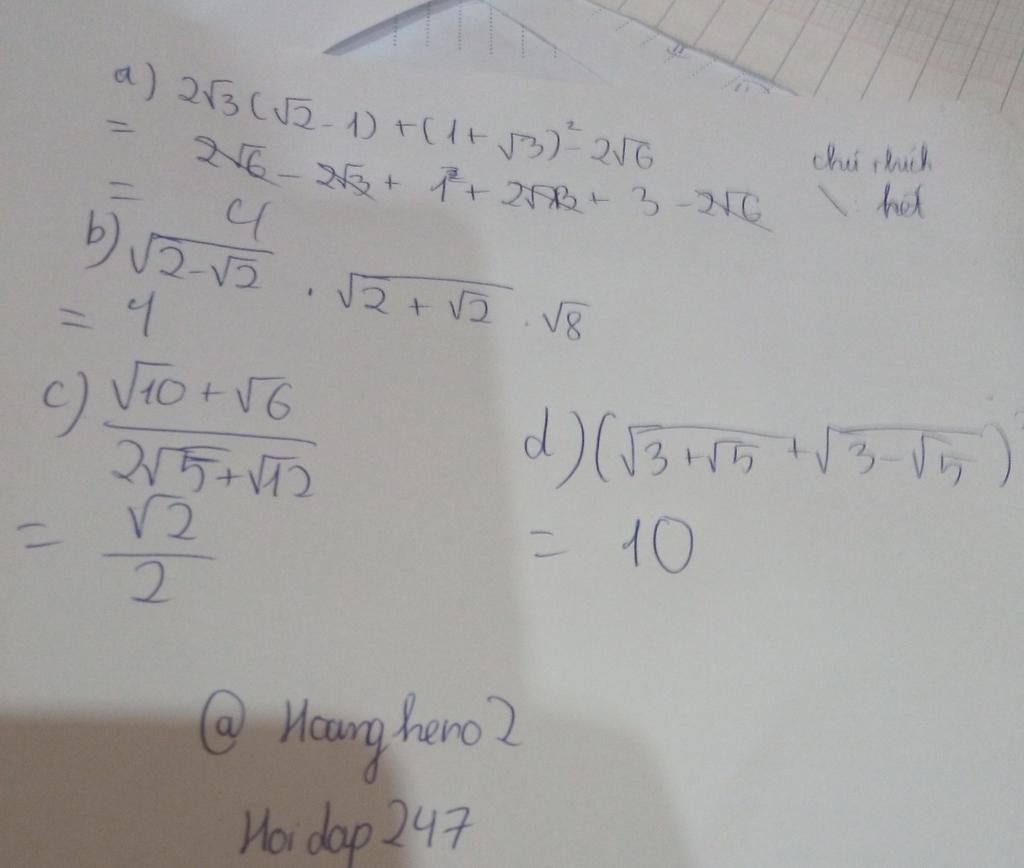 a) 2√3(√2-1)+(1+√3)²-2√6
= 2√6-2√3+1²+2√3+3-2√6 chú thích
= 4 \: hết
b) √(2-√2) . √(2+√2) . √8
= 4
c) (√10+√6)/(2√5+√12)
= √2/2
d) (√(3+√5)+√(3-√5))²
= 10
@ Hoanghero2
Hoidap247